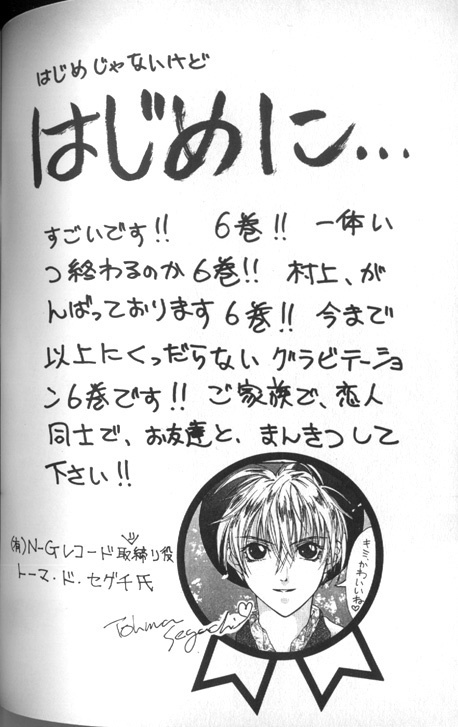 はじめじゃないけど
はじめに...
すごいです!! 6巻!! 一体い
つ終わるのか6巻!! 村上、が
んばっております6巻!! 今まで
以上にくっだらないグラビテーショ
ン6巻です!! ご家族で、恋人
同士で、お友達と、まんきつして
下さい!!
(有)N-Gレコード取締り役
トーマ・ド・セグチ氏
キミ、かわいいね♡
Tohma Seguchi♡